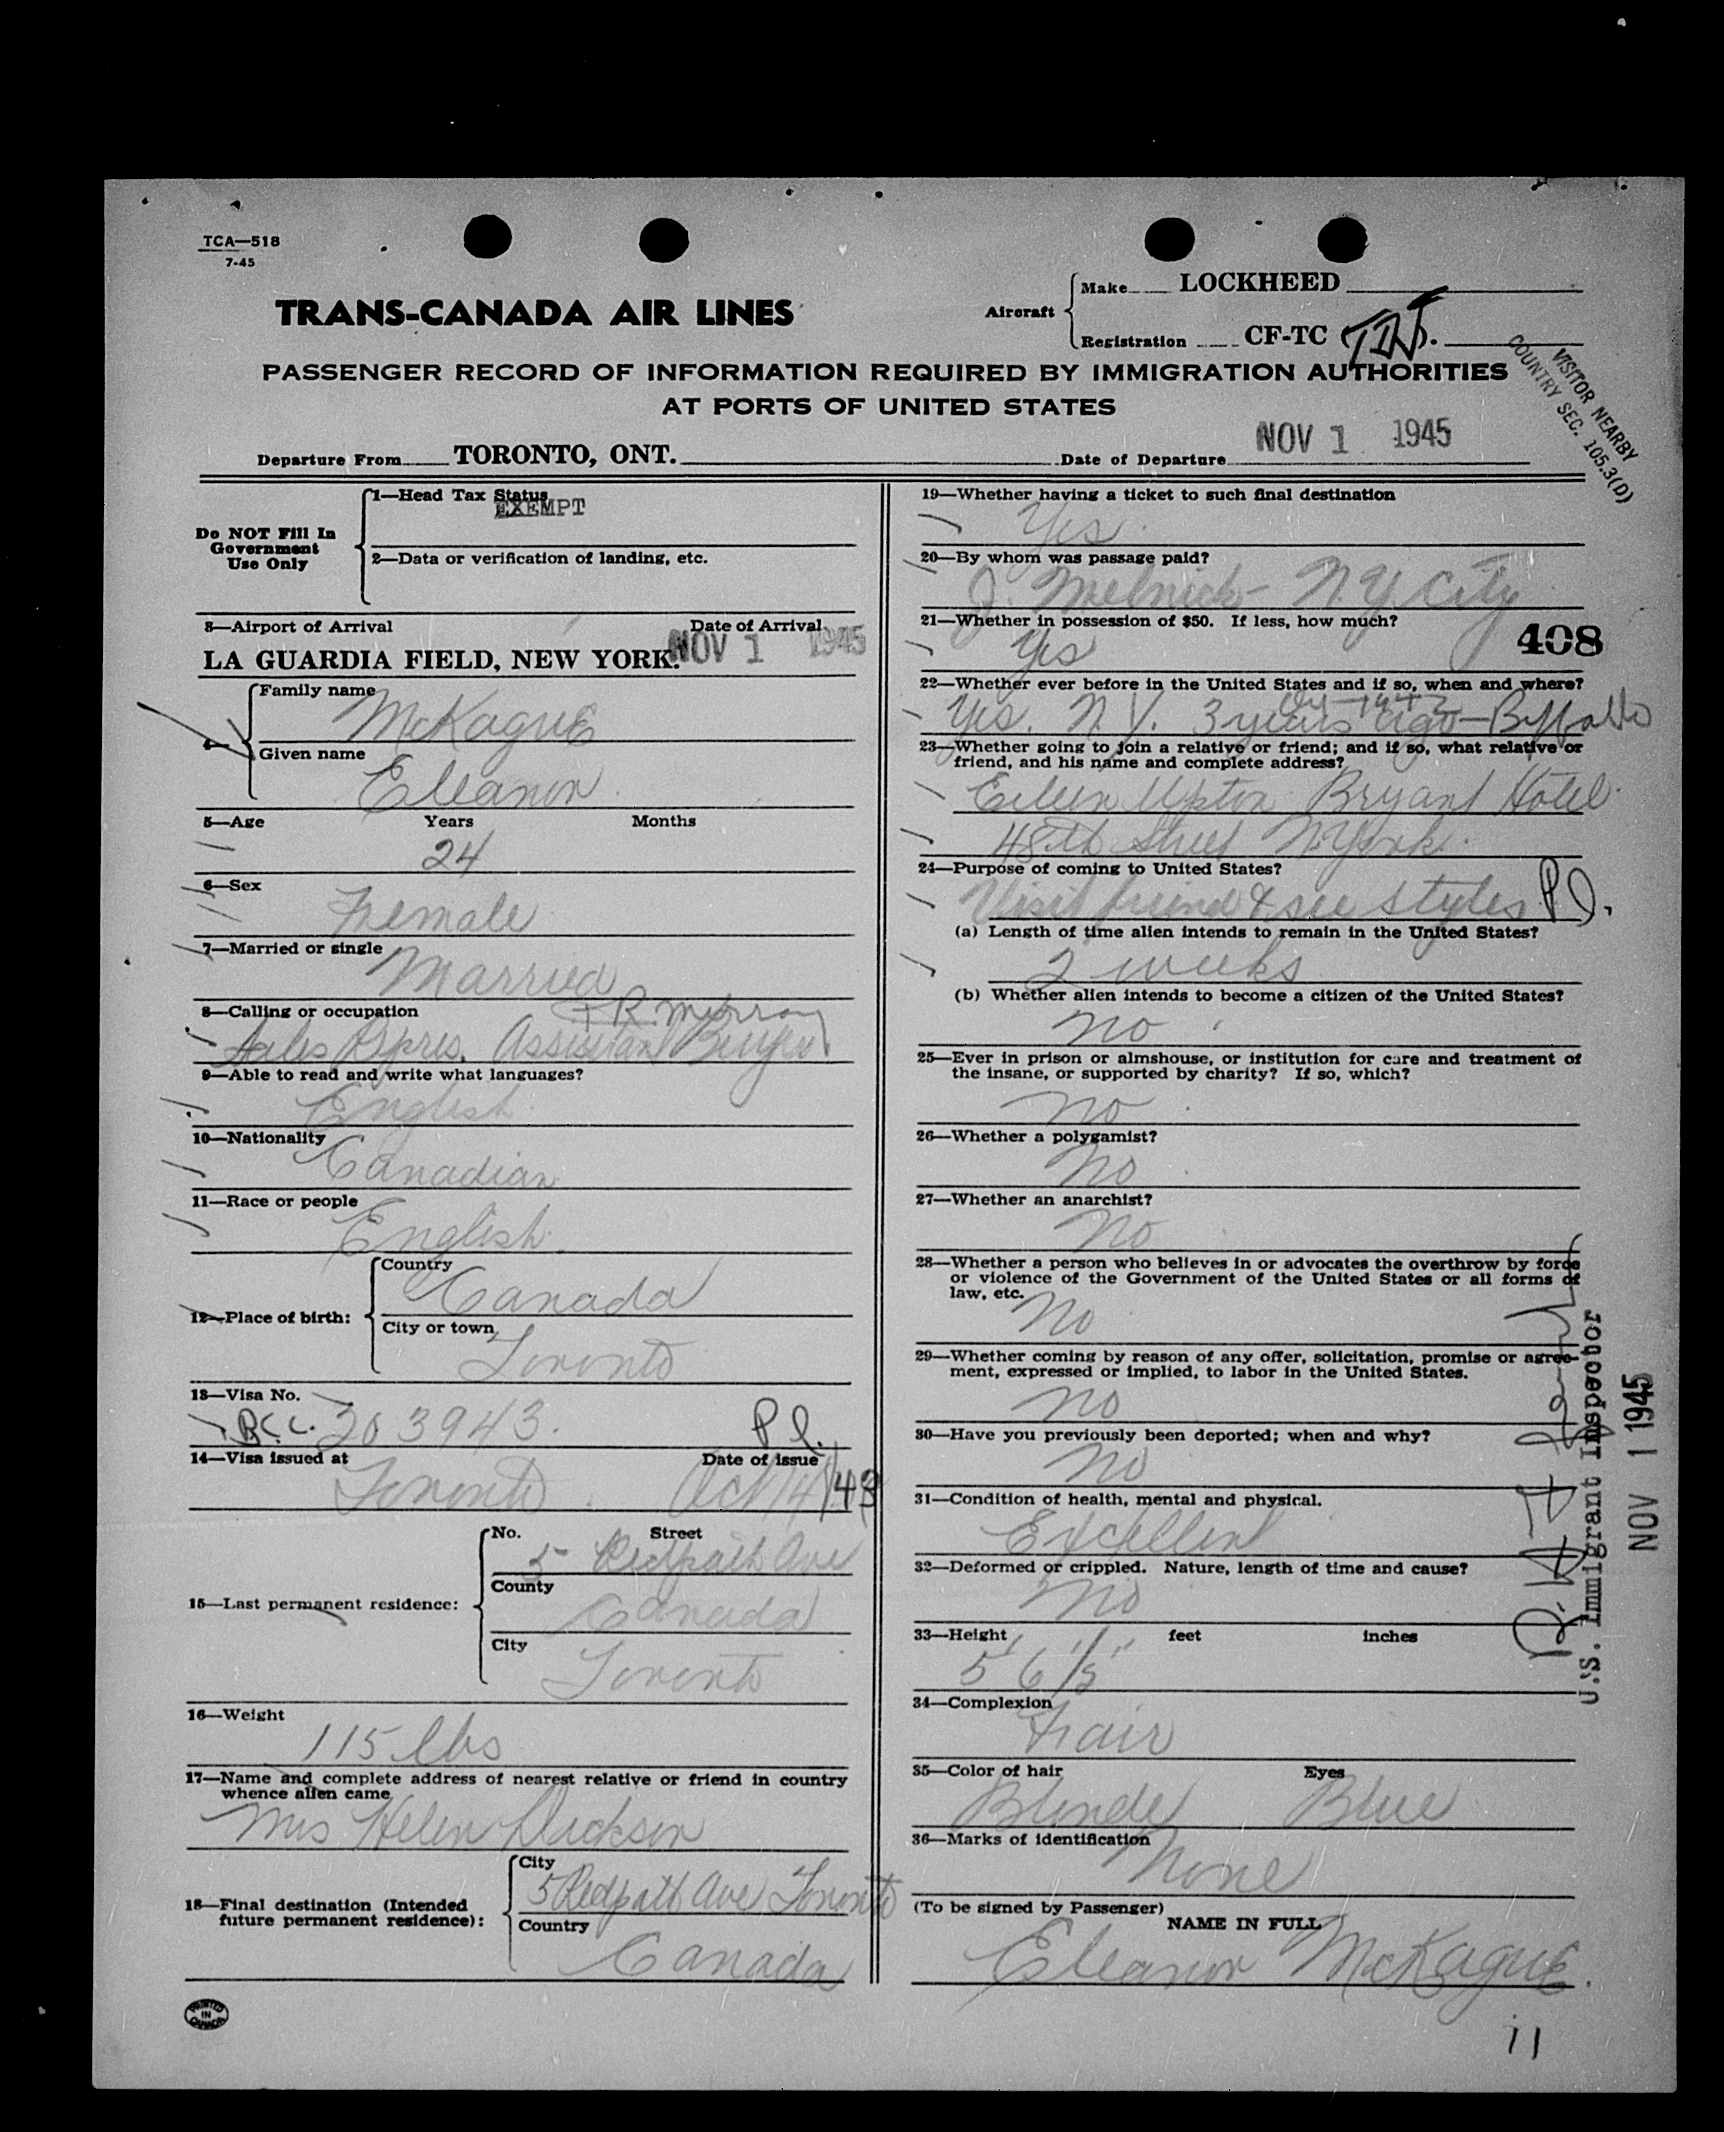 TCA—518
7-45
TRANS-CANADA AIR LINES
Aircraft
Make LOCKHEED
Registration CF-TC
PASSENGER RECORD OF INFORMATION REQUIRED BY IMMIGRATION AUTHORITIES
AT PORTS OF UNITED STATES
VISITOR NEARBY
COUNTRY SEC. 105.3(D)
Departure From TORONTO, ONT. Date of Departure NOV 1 1945
Do NOT Fill In
Government
Use Only
1—Head Tax Status
EXEMPT
2—Data or verification of landing, etc.
3—Airport of Arrival Date of Arrival
LA GUARDIA FIELD, NEW YORK. NOV 1 1945
4—
Family name
McKague
Given name
Eleanor
5—Age Years Months
24
6—Sex
Female
7—Married or single
Married
8—Calling or occupation
Sales Repres. Assistant Buyer
9—Able to read and write what languages?
English
10—Nationality
Canadian
11—Race or people
English
12—Place of birth:
Country
Canada
City or town
Toronto
13—Visa No.
B.C.C. 203943. P.I.
14—Visa issued at Date of issue
Toronto Oct 14/43
15—Last permanent residence:
No. Street
5 Redpath Ave
County
Canada
City
Toronto
16—Weight
115 lbs
17—Name and complete address of nearest relative or friend in country
whence alien came
Mrs Helen Dickson
18—Final destination (Intended
future permanent residence):
City
5 Redpath Ave Toronto
Country
Canada
PRINTED
IN
CANADA
19—Whether having a ticket to such final destination
Yes
20—By whom was passage paid?
J. Melnick - N.Y. City
21—Whether in possession of $50. If less, how much?
Yes
408
22—Whether ever before in the United States and if so, when and where?
Yes. N.Y. 3 years ago - Buffalo
23—Whether going to join a relative or friend; and if so, what relative or
friend, and his name and complete address?
Eileen Upton Bryant Hotel.
48th Street N. York.
24—Purpose of coming to United States?
Visit friend & see styles P.I.
(a) Length of time alien intends to remain in the United States?
2 weeks
(b) Whether alien intends to become a citizen of the United States?
No
25—Ever in prison or almshouse, or institution for care and treatment of
the insane, or supported by charity? If so, which?
No
26—Whether a polygamist?
No
27—Whether an anarchist?
No
28—Whether a person who believes in or advocates the overthrow by force
or violence of the Government of the United States or all forms of
law, etc.
No
29—Whether coming by reason of any offer, solicitation, promise or agree-
ment, expressed or implied, to labor in the United States.
No
30—Have you previously been deported; when and why?
No
31—Condition of health, mental and physical.
Excellent
32—Deformed or crippled. Nature, length of time and cause?
No
33—Height feet inches
5' 6 1/2"
34—Complexion
Fair
35—Color of hair Eyes
Blonde Blue
36—Marks of identification
None
(To be signed by Passenger)
NAME IN FULL
Eleanor McKague.
11
U.S. Immigrant Inspector
NOV 1 1945